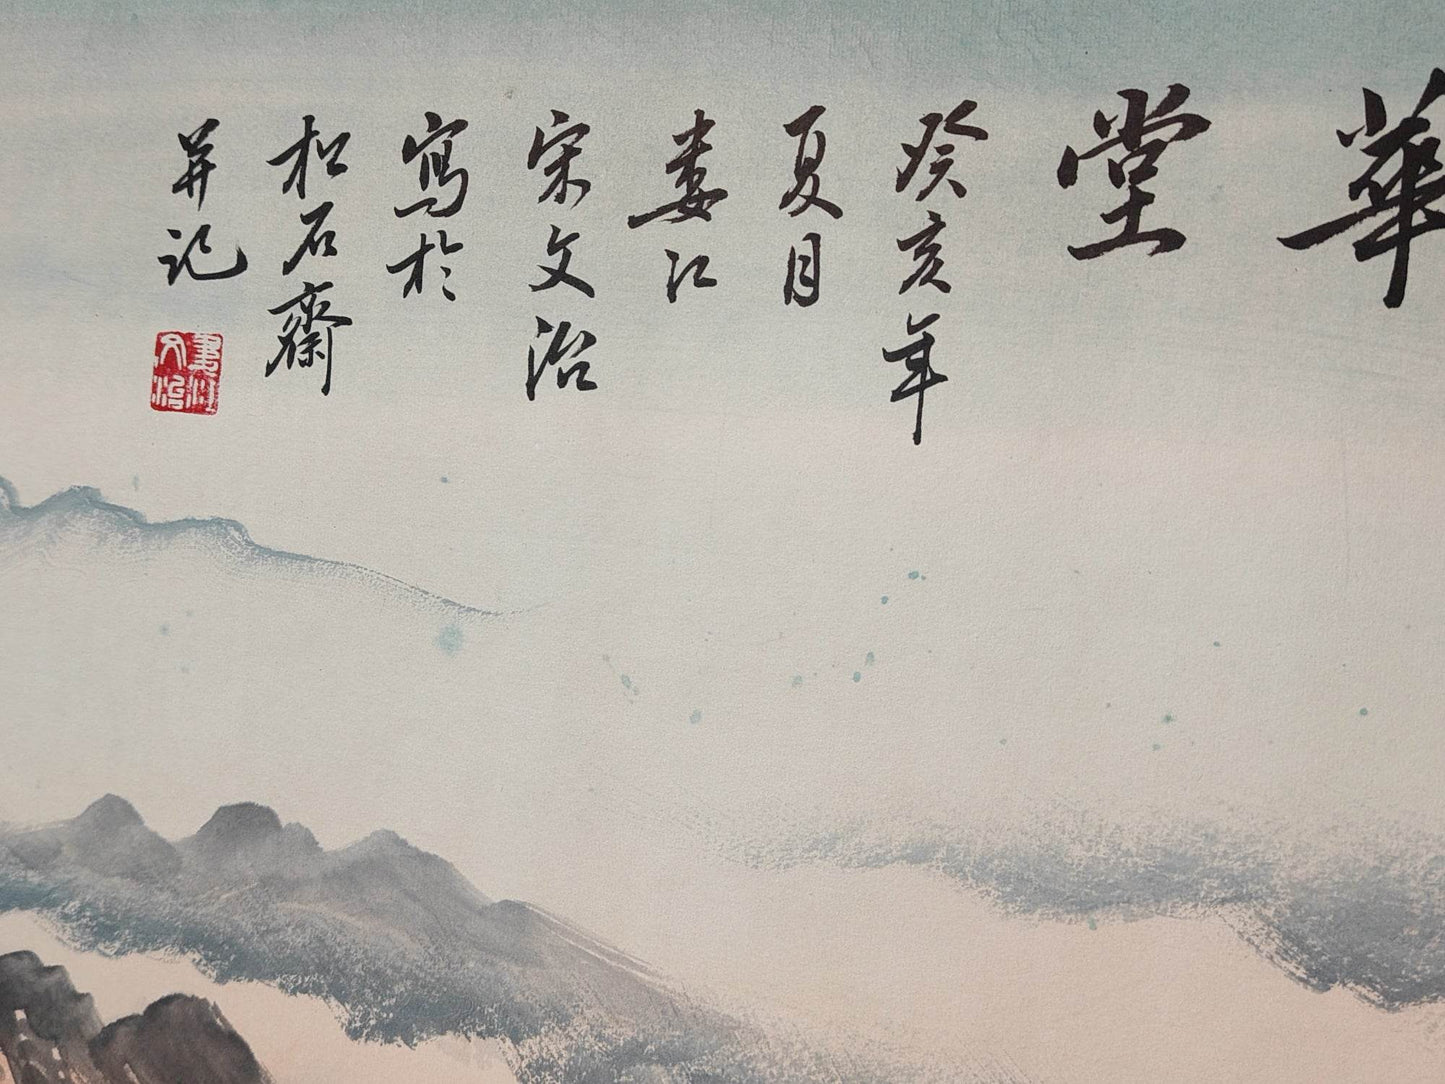 華
堂
癸亥年
夏月
娄江
宋文治
寫於
松石齋
并记
婁江
文治